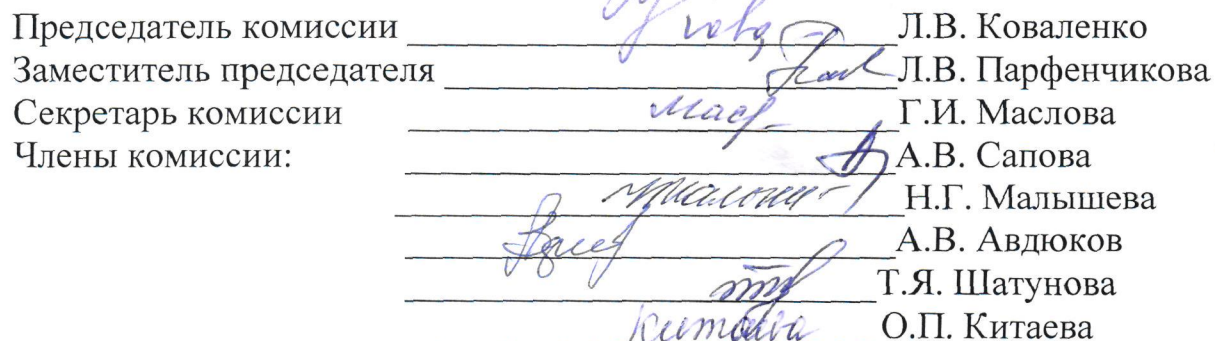 Председатель комиссии Л.В. Коваленко
Заместитель председателя Л.В. Парфенчикова
Секретарь комиссии Г.И. Маслова
Члены комиссии: А.В. Сапова
Н.Г. Малышева
А.В. Авдюков
Т.Я. Шатунова
Китаева О.П. Китаева